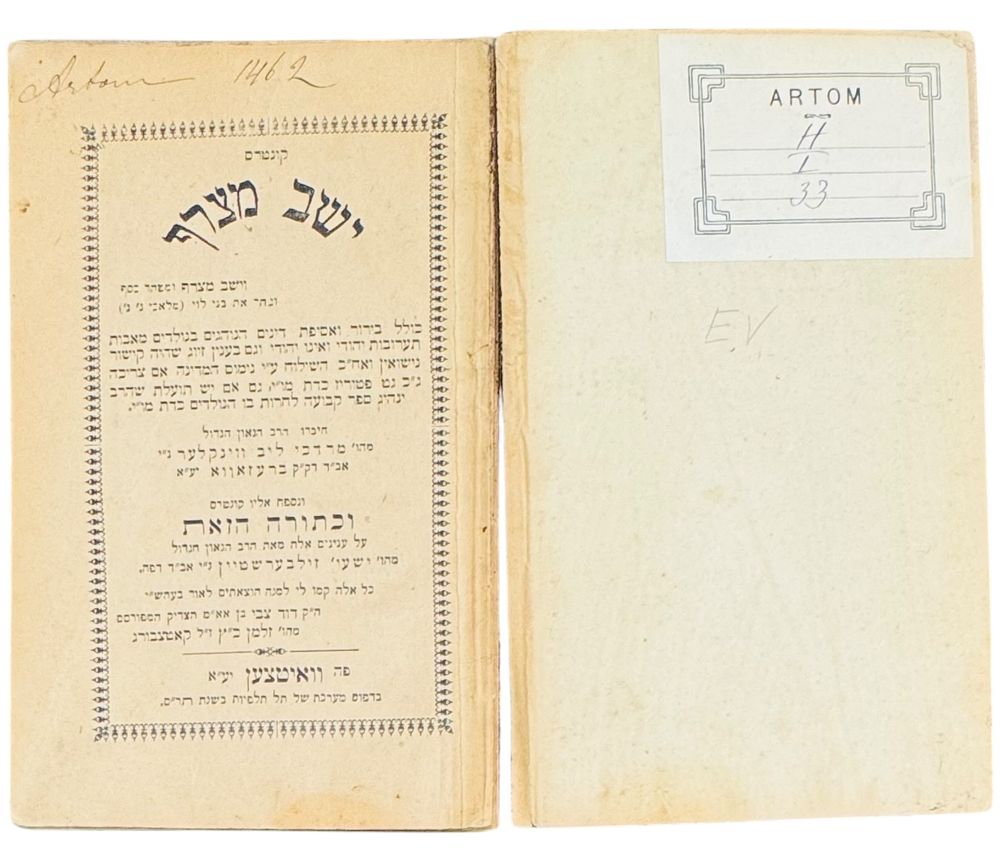 Artom 1462
קונטרס
ישב מצרף
וישב מצרף ומטהר כסף
וטהר את בני לוי (מלאכי ג' ג')
כולל בירור ואסיפת דינים הנוהגים בנולדים מאבות
תערובות יהודי ואינו יהודי וגם בענין זיוג שהיה קישור
נישואין ואח"כ השילוח ע"י נימוס המדינה אם צריכה
ג"כ גט פטורין כדת מו"י, גם אם יש תועלת שהרב
ינהיג ספר קבועה לחרות בו הנולדים כדת מו"י.
חיברו הרב הגאון הגדול
מהו' מרדכי ליב ווינקלער נ"י
אב"ד דק"ק ברעזאווא יע"א
ונספח אליו קונטרס
וכתורה הזאת
על ענינים אלה מאת הרב הגאון הגדול
מהו' ישעי' זילבערשטיין נ"י אב"ד דפה.
כל אלה קמו לי למנה הוצאתים לאור בעהש"י
ה"ק דוד צבי בן אא"מ הצדיק המפורסם
מהו' זלמן כ"ץ ז"ל קאטצבורג
פה וואיטצען יע"א
בדפוס מערכת של תל תלפיות בשנת התר"ס.
ARTOM
H
I
33
EV